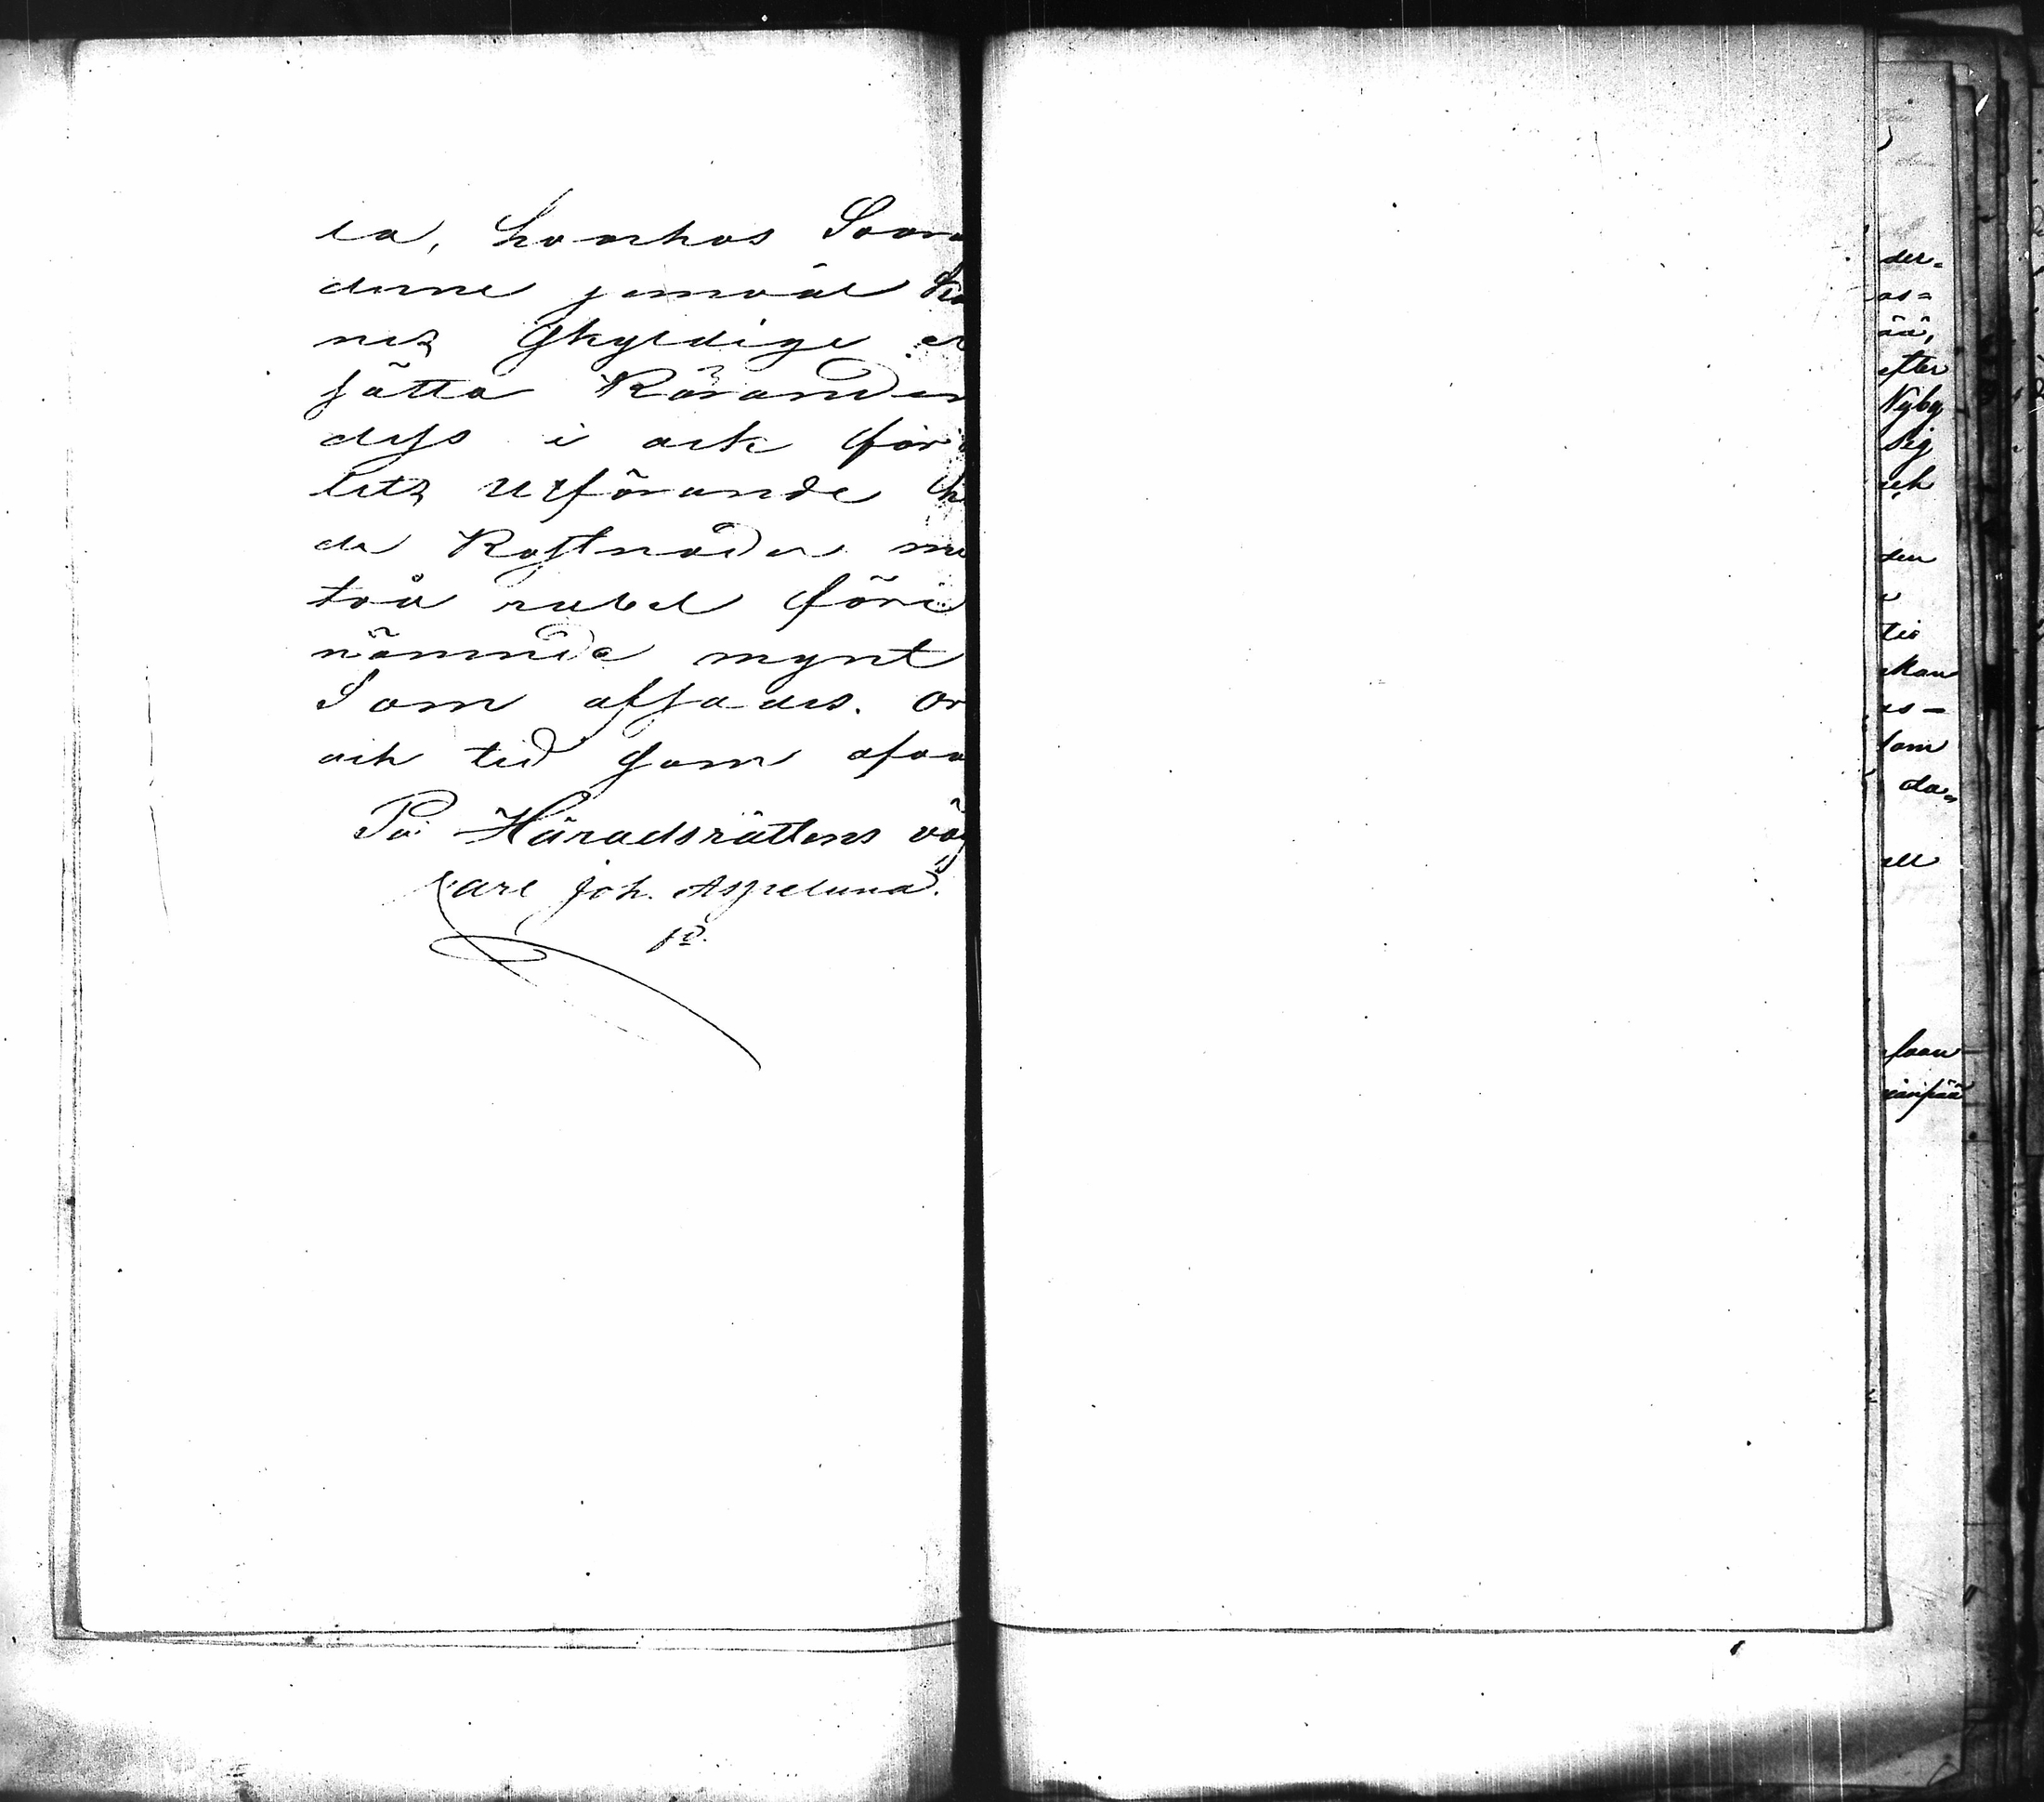 la, hvarhos Svaran
derne jemväl kän
nes skyldige er
sätta Käranden
dess i och för
lets utförande ha
de kostnader me
två rubel före
nämnde mynt
Som afsades. Or
och tid som ofva
På Häradsrättens väg
Carl Joh. Aspelund.
der=
as=
ää,
efter
Nyby
sig
och
den
tio
kan
es-
som
da=
ell